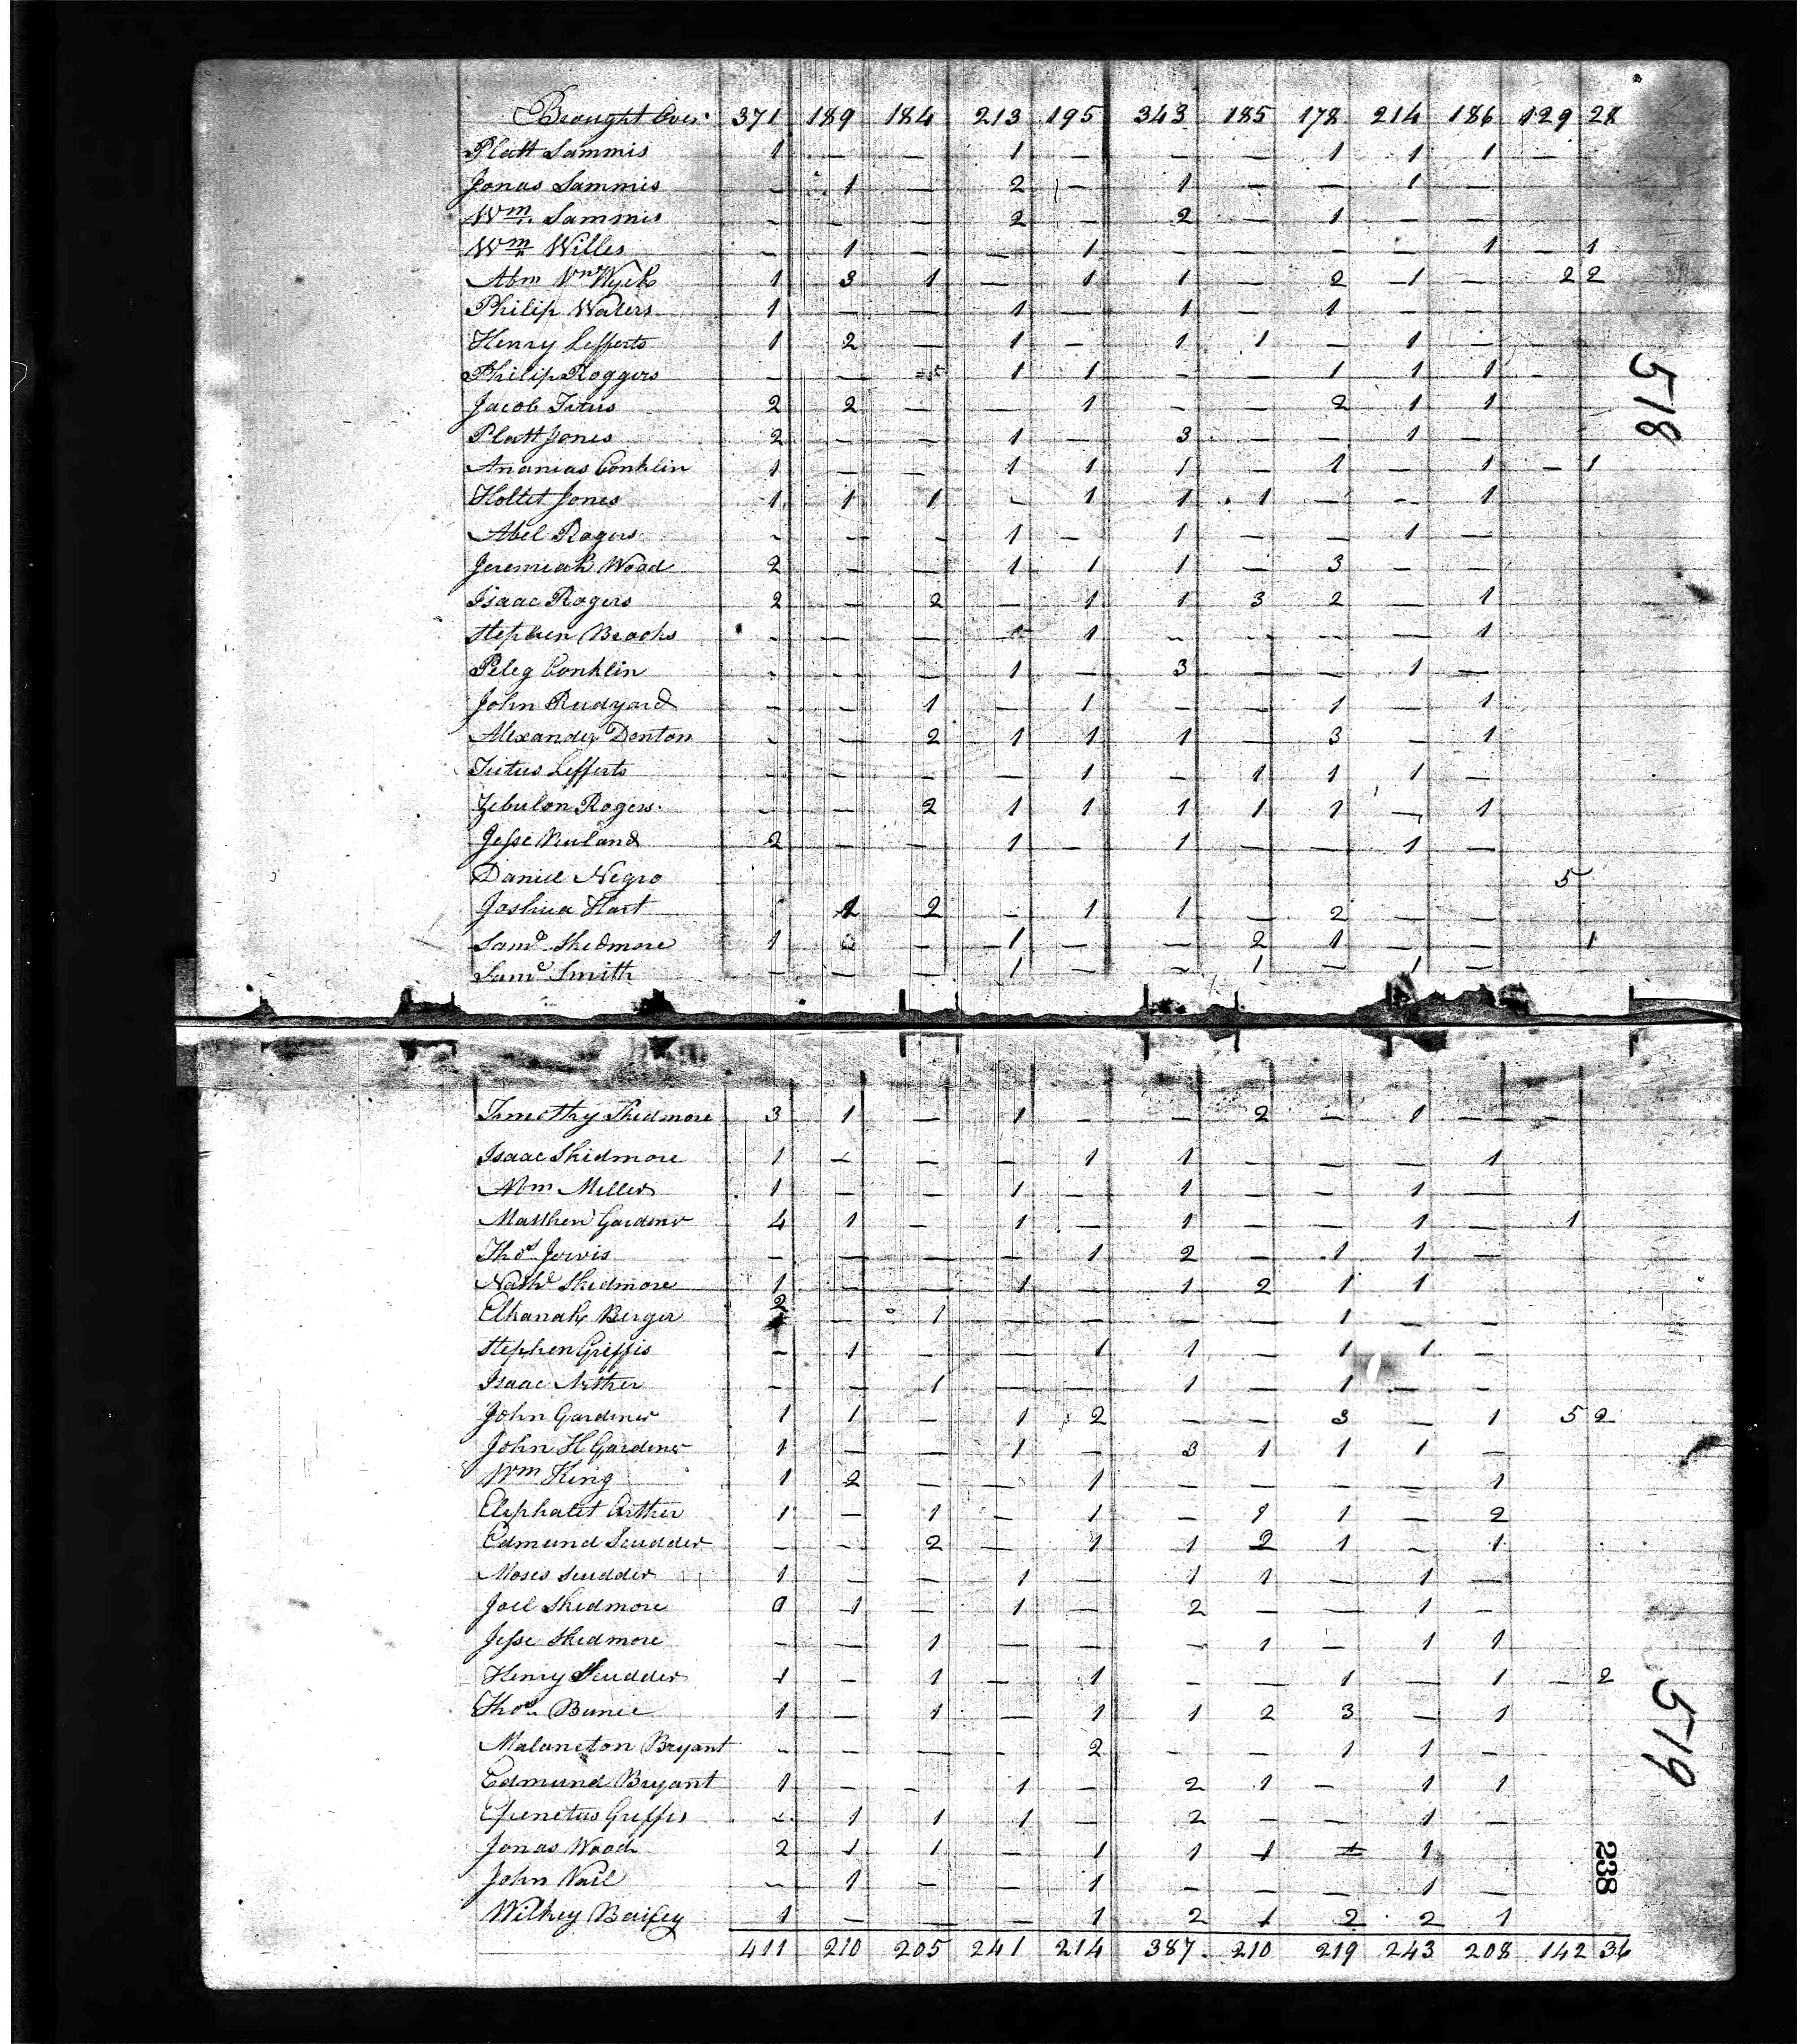 Brought Over 371 189 184 213 195 343 185 178 214 186 129 28
Platt Sammis 1 — — 1 — — — 1 1 1 —
Jonas Sammis - 1 — 2 — 1 — — 1 —
Wm Sammis - - - 2 — 2 — 1 — —
Wm Willes - 1 — — 1 — — — — 1 — 1
Abm Vn Wyck 1 3 1 — 1 1 — 2 1 — 2 2
Philip Waters 1 — — 1 — 1 — 1 — —
Henry Lefferts 1 2 — 1 — 1 1 — 1 —
Philip Roggers — — 1 1 — — 1 1 1 -
Jacob Titus 2 2 — — 1 - — 2 1 1
Platt Jones 2 — — 1 — 3 — — 1 —
Ananias Conklin 1 — — 1 1 1 — 1 — 1 — 1
Holtet Jones 1 1 1 - 1 1 1 — - 1
Abel Rogers - — - 1 — 1 — — 1 —
Jeremiah Wood 2 — — 1 1 1 — 3 — —
Isaac Rogers 2 — 2 — 1 1 3 2 — 1
Stephen Brooks - — — 1 1 - - - — 1
Peleg Conklin - — — 1 — 3 — — 1 —
John Rudyard - - 1 — 1 — — 1 — 1
Alexander Denton - — 2 1 1 1 — 3 — 1
Titus Lefferts — — — — 1 — 1 1 1 —
Zebulon Rogers - — 2 1 1 1 1 1 — 1
Jesse Ruland 2 — — 1 — 1 — — 1 —
Daniel Negro 5
Joshua Hart 2 — 1 1 — 2 — —
Saml Skidmore 1 — 1 — — 2 1 — — 1
Saml Smith — — — 1 — — 1 — 1 —
518
Timothy Skidmore 3 1 — 1 — — 2 — 1 — —
Isaac Skidmore 1 — — — 1 1 — — — 1
Miller 1 — — 1 — 1 — — 1 —
Matthew Gardner 4 1 — 1 — 1 — — 1 — 1
Thos Jervis — — — — 1 2 — 1 1 —
Nathl Skidmore 1 — — 1 1 2 1 1
Elkanah Berger 2 — 1 — — — — 1 — —
Stephen Griffis — 1 — — 1 1 — 1 1 —
Isaac Arther — — 1 — — 1 — 1 — —
John Gardiner 1 1 — 1 2 — — 3 — 1 5 2
John H Gardener 1 — — 1 — 3 1 1 1 —
Wm King 1 2 — — 1 — — — — 1
Eliphalet Arther 1 — 1 — 1 — 1 1 — 2
Edmund Scudder — — 2 — 1 1 2 1 — 1
Moses Scudder 1 — — 1 — 1 1 — 1 —
Joel Skidmore 1 — 1 — 2 — — 1 —
Jesse Skidmore — — 1 — — — 1 — 1 1
Henry Scudder 1 — 1 — 1 — — 1 — 1 — 2
Thos Bunce 1 — 1 — 1 1 2 3 — 1
Malancton Bryant — — — — 2 — — 1 1 —
Edmund Bryant 1 — — 1 — 2 1 — 1 1
Epenetus Griffis — 1 1 1 2 — — 1
Jonas Wood 2 1 1 — 1 1 1 1 1
John Vail — 1 — — 1 — — — 1 —
Wilkey 1 — — — 1 2 1 2 2 1
411 210 205 241 214 387 210 219 243 208 142 36
519
238